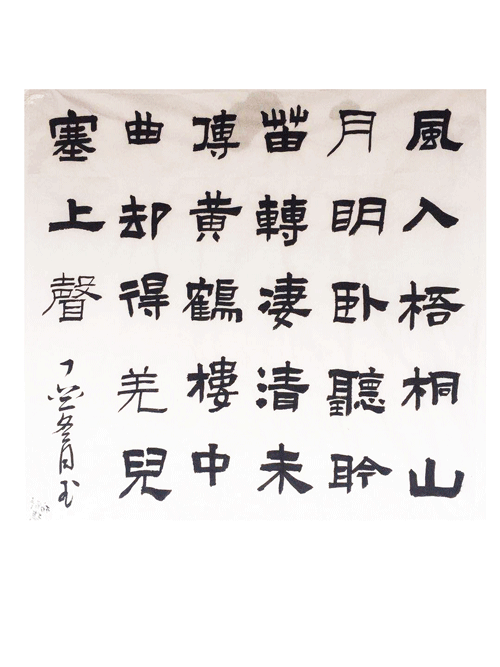 風入梧桐山
月明卧聽聆
笛轉凄清未
傳黄鶴樓中
曲却得羌兒
塞上聲
丁 冬月